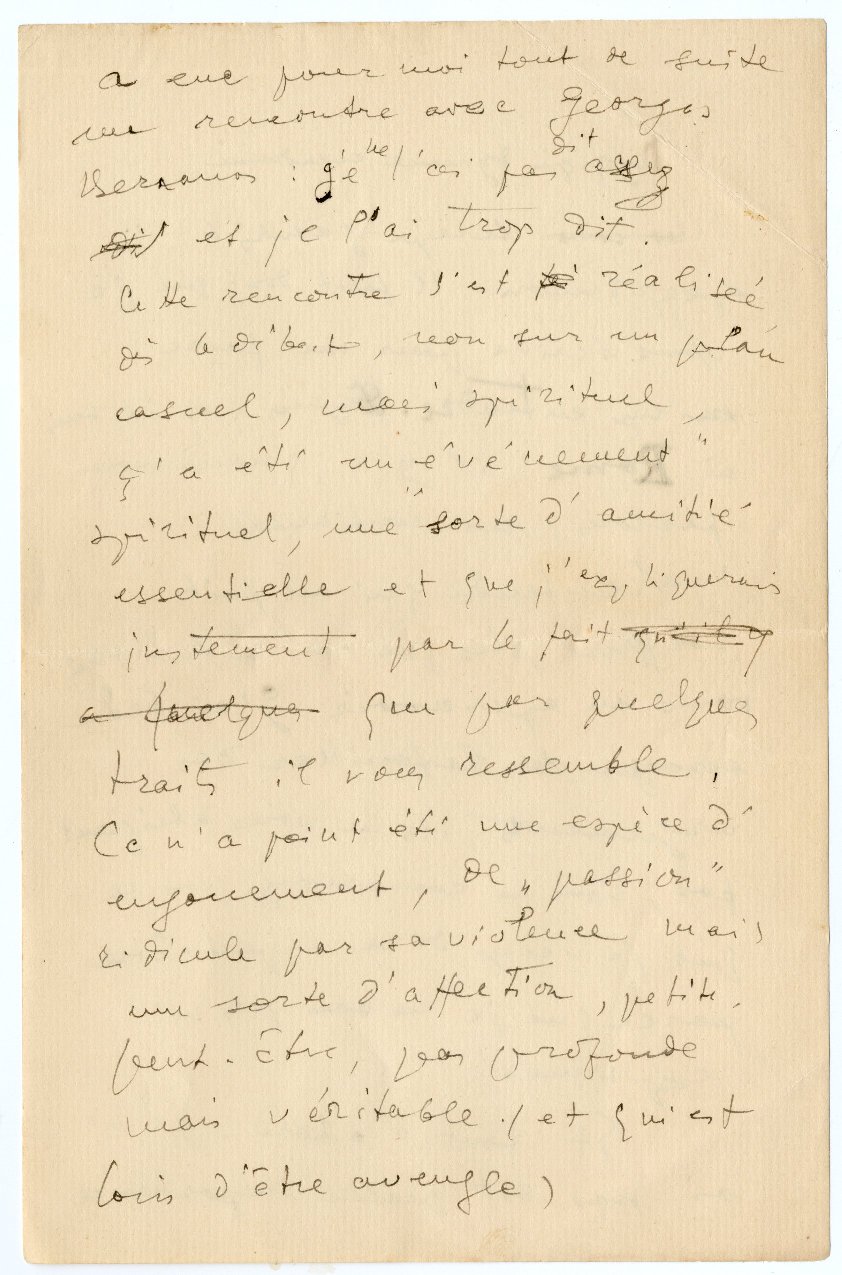 a eue pour moi tout de suite
une rencontre avec Georges
Bernanos : je ne l'ai pas dit assez
dit et je l'ai trop dit.
Cette rencontre s'est réalisée
dès le début, non sur un plan
casuel, mais spirituel,
ç'a été un événement"
spirituel, une "sorte d'amitié
essentielle et que j'expliquerais
justement par le fait qu'il y
a quelques que par quelques
traits il vous ressemble.
Ce n'a point été une espèce d'
engouement, de „passion"
ridicule par sa violence mais
une sorte d'affection, petite,
peut-être, pas profonde
mais véritable. (et qui est
loin d'être aveugle)